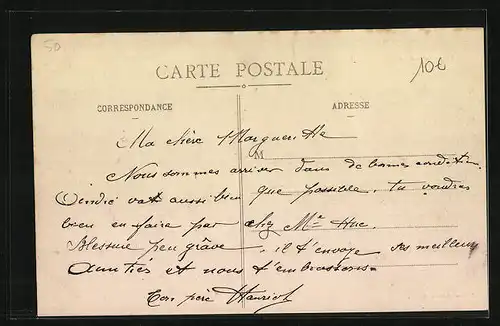 50
10€
CARTE POSTALE
CORRESPONDANCE
ADRESSE
Ma chère Marguerite
M
Nous sommes arrivés dans de bonnes conditions.
va aussi bien que possible, tu voudras
bien en faire par chez Mme Huc.
Blessure peu grave, il t'envoye ses meilleures
amitiés et nous t'embrassons.
Ton père